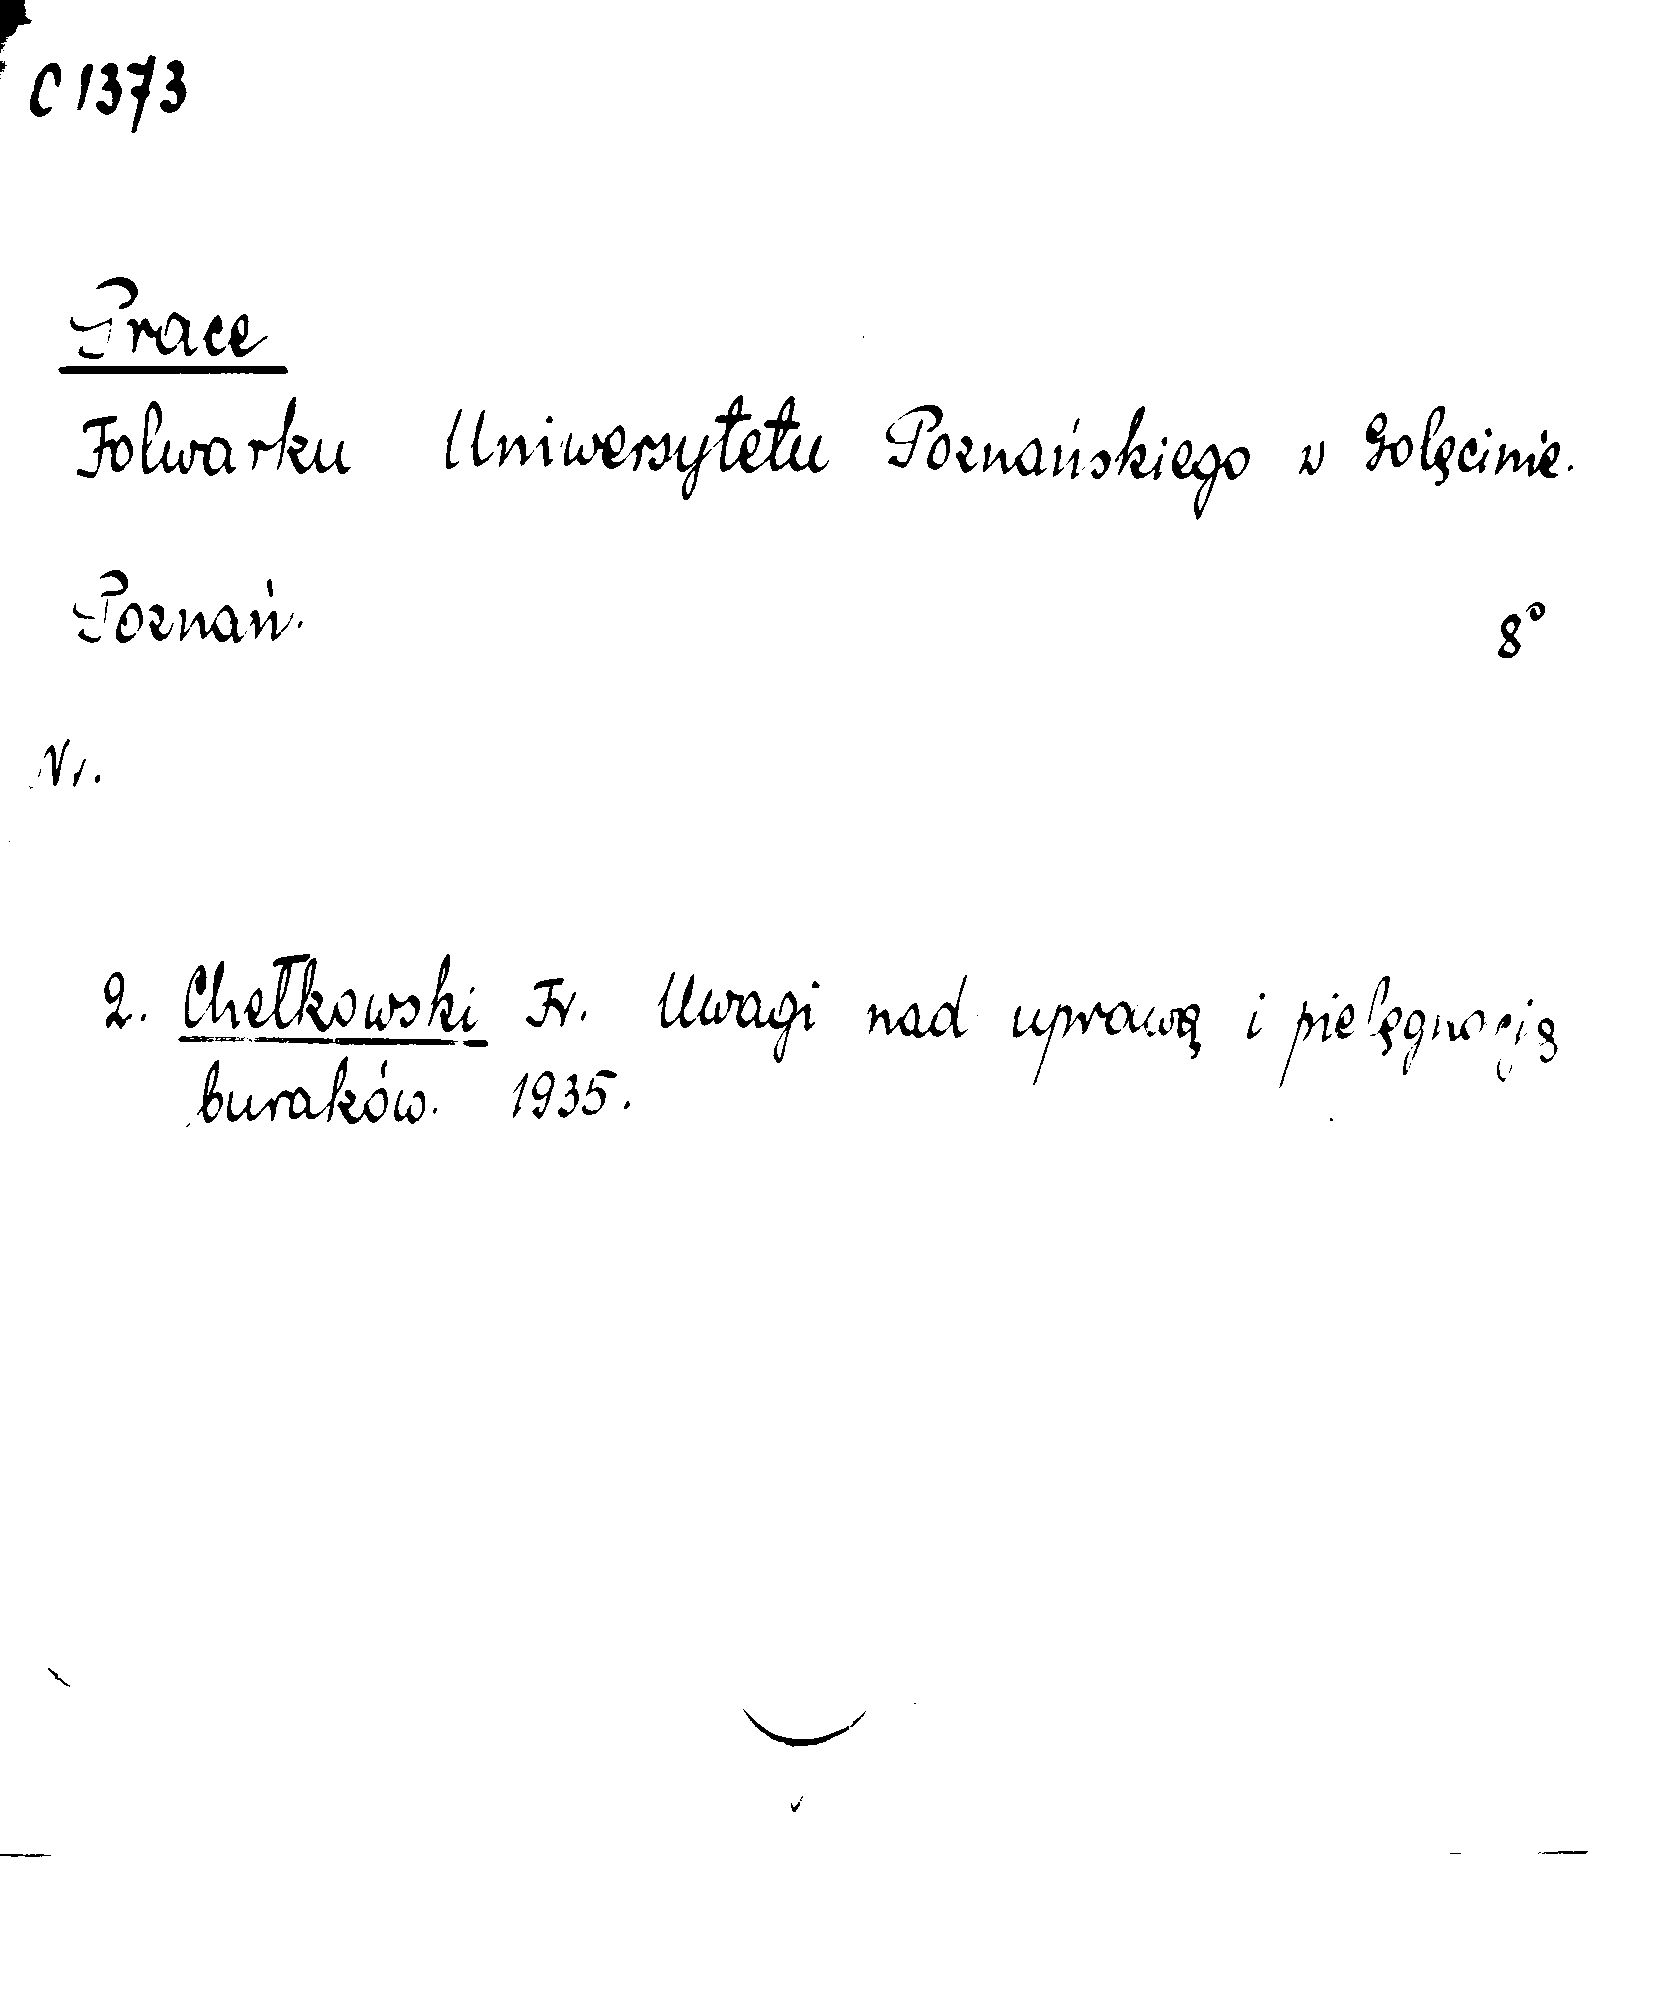 C 1373
Prace
Folwarku Uniwersytetu Poznańskiego w Golęcinie.
Poznań. 8°
Nr.
2. Chełkowski Fr. Uwagi nad uprawą i pielęgnacją
buraków. 1935.